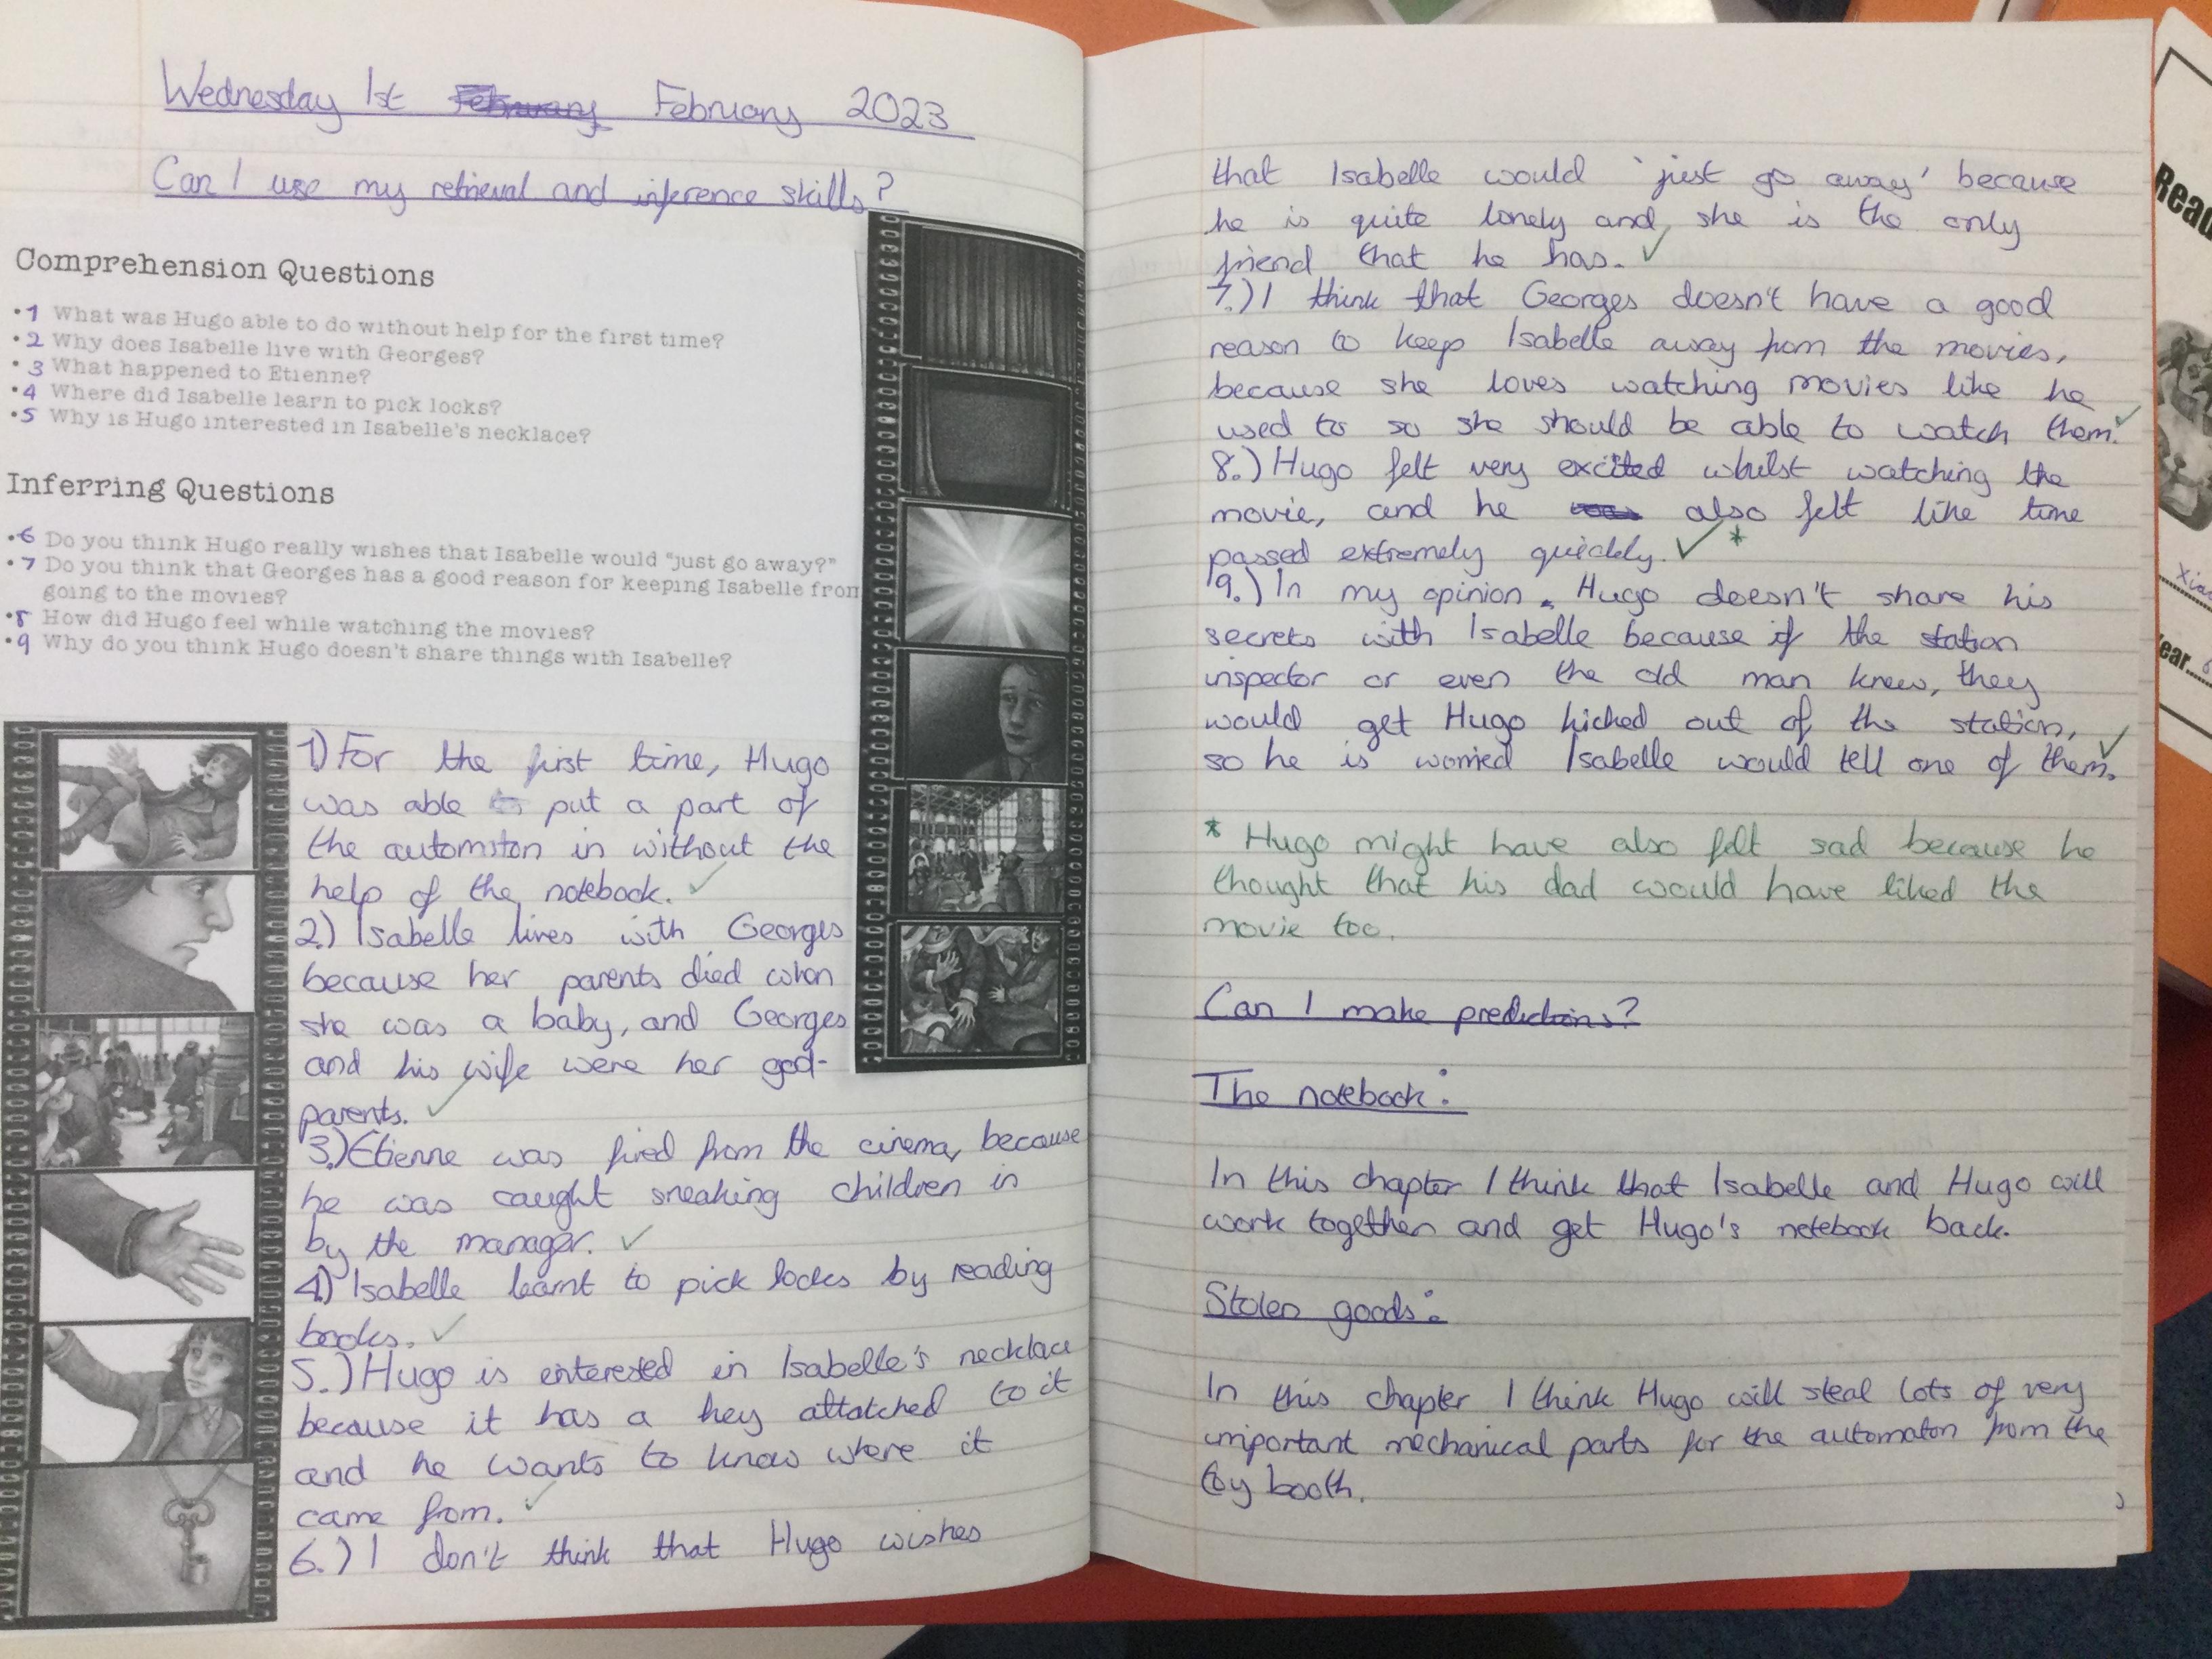 Wednesday 1st February February 2023
Can I use my retrieval and inference skills?
Comprehension Questions
•1 What was Hugo able to do without help for the first time?
•2 Why does Isabelle live with Georges?
•3 What happened to Etienne?
•4 Where did Isabelle learn to pick locks?
•5 Why is Hugo interested in Isabelle's necklace?
Inferring Questions
•6 Do you think Hugo really wishes that Isabelle would "just go away?"
•7 Do you think that Georges has a good reason for keeping Isabelle from
going to the movies?
•8 How did Hugo feel while watching the movies?
•9 Why do you think Hugo doesn't share things with Isabelle?
1) For the first time, Hugo
was able to put a part of
the automston in without the
help of the notebook.
2.) Isabelle lives with Georges
because her parents died when
she was a baby, and Georges
and his wife were her god-
parents.
3.) Etienne was fired from the cinema, because
he was caught sneaking children in
by the manager.
4.) Isabelle learnt to pick locks by reading
books.
5.) Hugo is enterested in Isabelle's necklace
because it has a key attatched to it
and he wants to know where it
came from.
6.) I don't think that Hugo wishes
that Isabelle would 'just go away' because
he is quite lonely and she is the only
friend that he has.
7.) I think that Georges doesn't have a good
reason to keep Isabelle away from the movies,
because she loves watching movies like he
used to so she should be able to watch them.
8.) Hugo felt very excited whilst watching the
movie, and he was also felt like time
passed extremely quickly. *
9.) In my opinion, Hugo doesn't share his
secrets with Isabelle because if the station
inspector or even the old man knew, they
would get Hugo kicked out of the station,
so he is worried Isabelle would tell one of them.
* Hugo might have also felt sad because he
thought that his dad would have liked the
movie too.
Can I make predictions?
The notebook:
In this chapter I think that Isabelle and Hugo will
work together and get Hugo's notebook back.
Stolen goods:
In this chapter I think Hugo will steal lots of very
important mechanical parts for the automaton from the
toy booth.
Read
ear